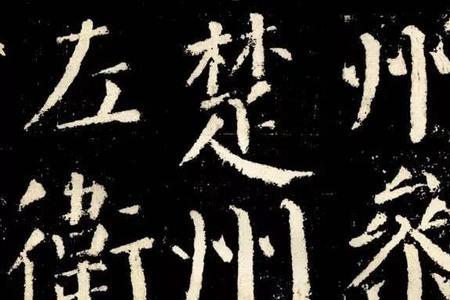 州參
楚州
左衛